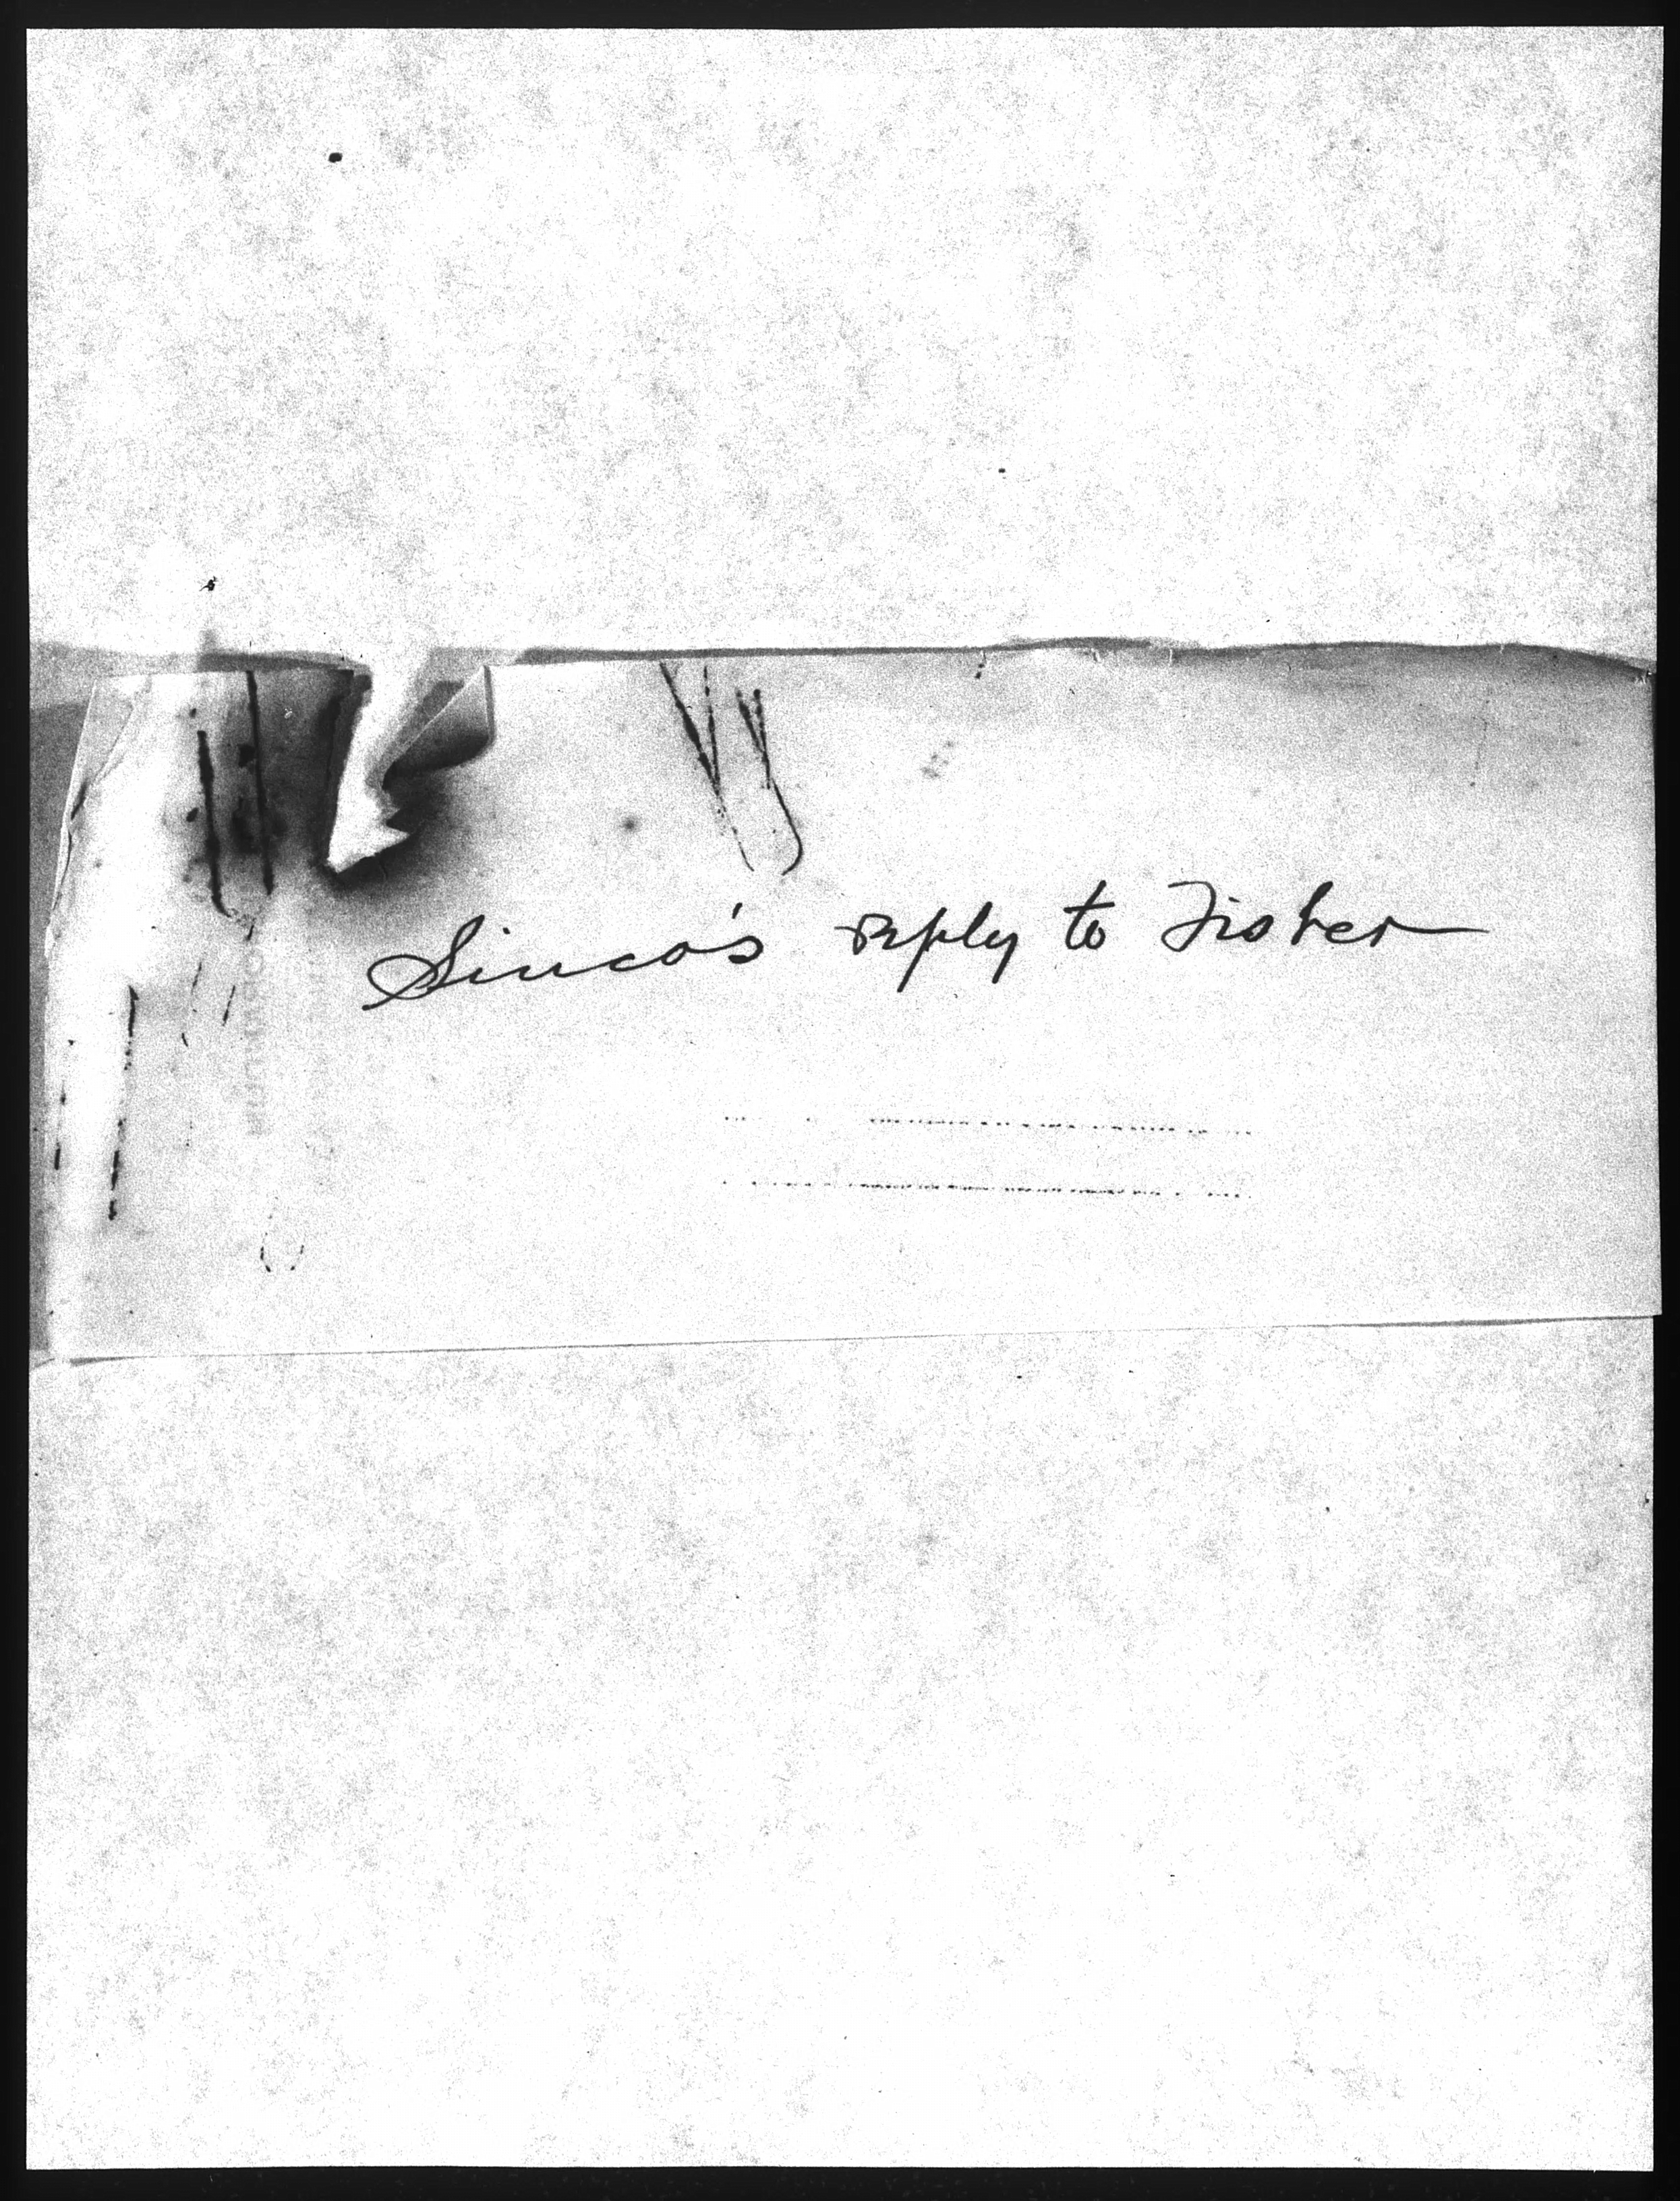 Sinco's reply to Fisher